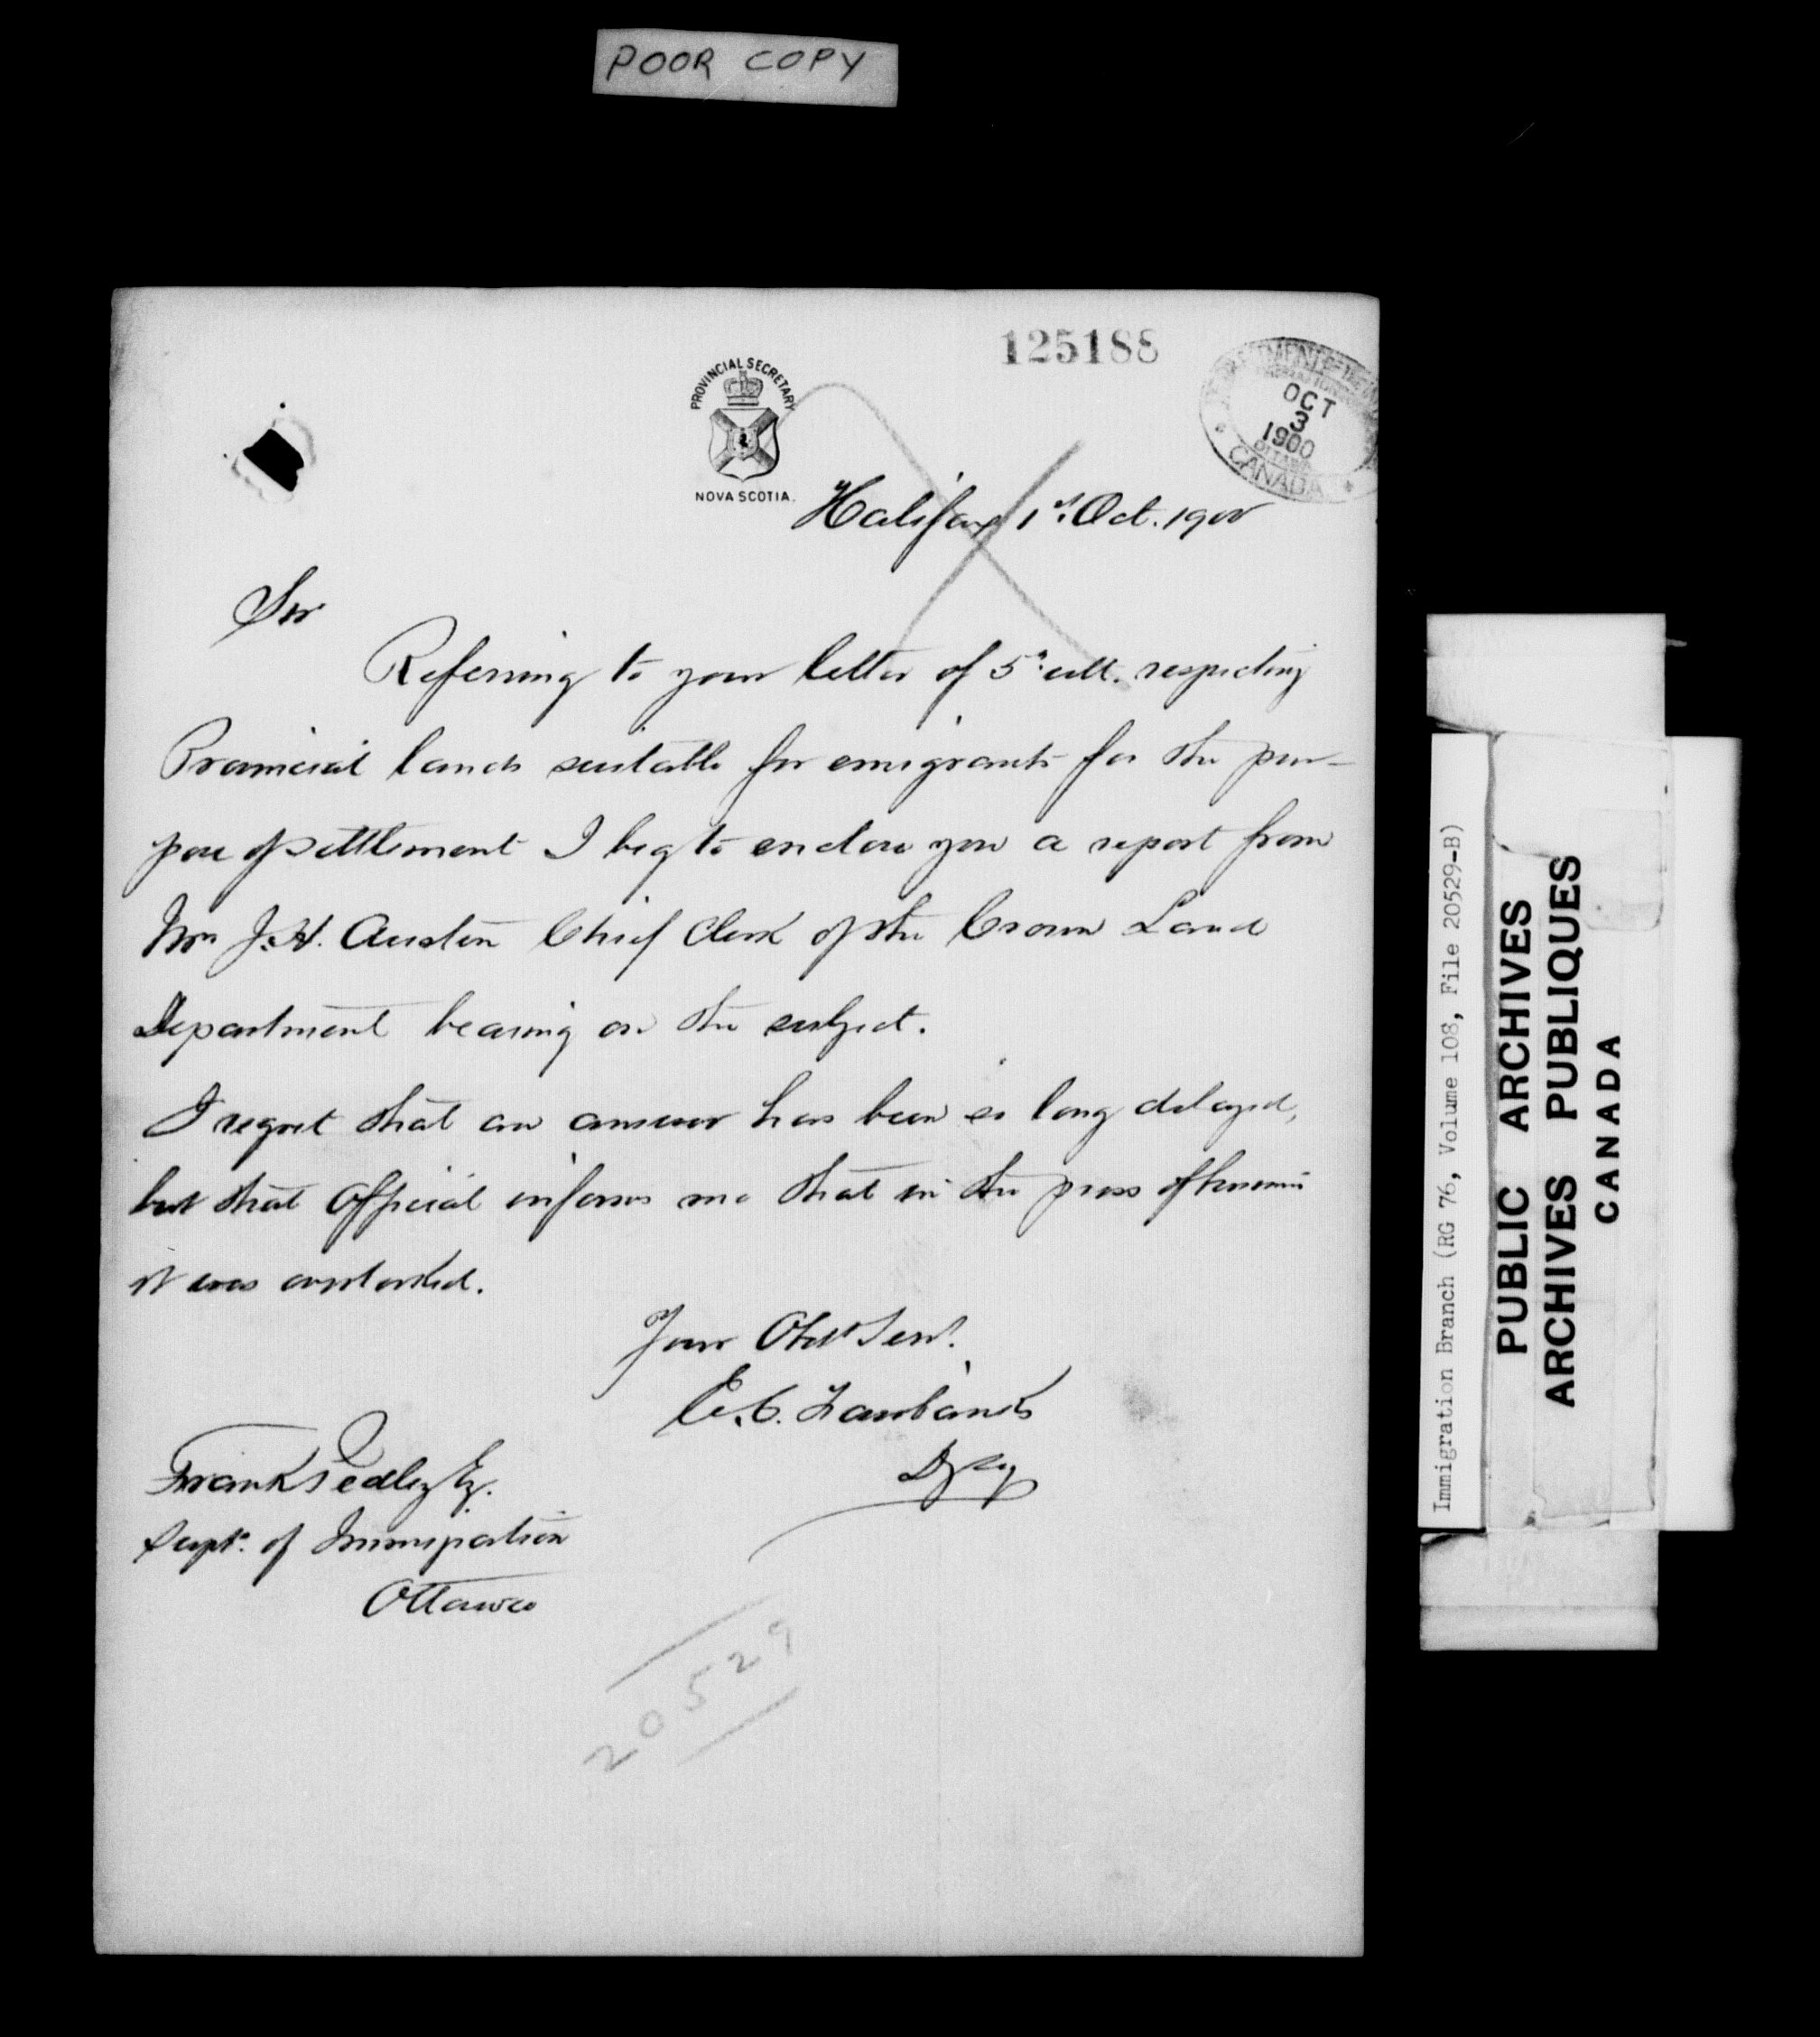 POOR COPY
125188
PROVINCIAL SECRETARY
NOVA SCOTIA.
DEPARTMENT OF THE
OCT
3
1900
OTTAWA
CANADA
Halifax 1st Oct. 1900
Sir
Referring to your letter of 5th ult. respecting
Provincial lands suitable for emigrants for the pur-
pose of settlement I beg to enclose you a report from
Mr J.H. Austen Chief Clerk of the Crown Land
Department bearing on the subject.
I regret that an answer has been so long delayed,
but that Official informs me that in the press of business
it was overlooked.
Your Obdt Servt.
E.C. Fairbanks
Dy Secy
Frank Pedley Esq.
Supt. of Immigration
Ottawa
20529
Immigration Branch (RG 76, Volume 108, File 20529-B)
PUBLIC ARCHIVES
ARCHIVES PUBLIQUES
CANADA